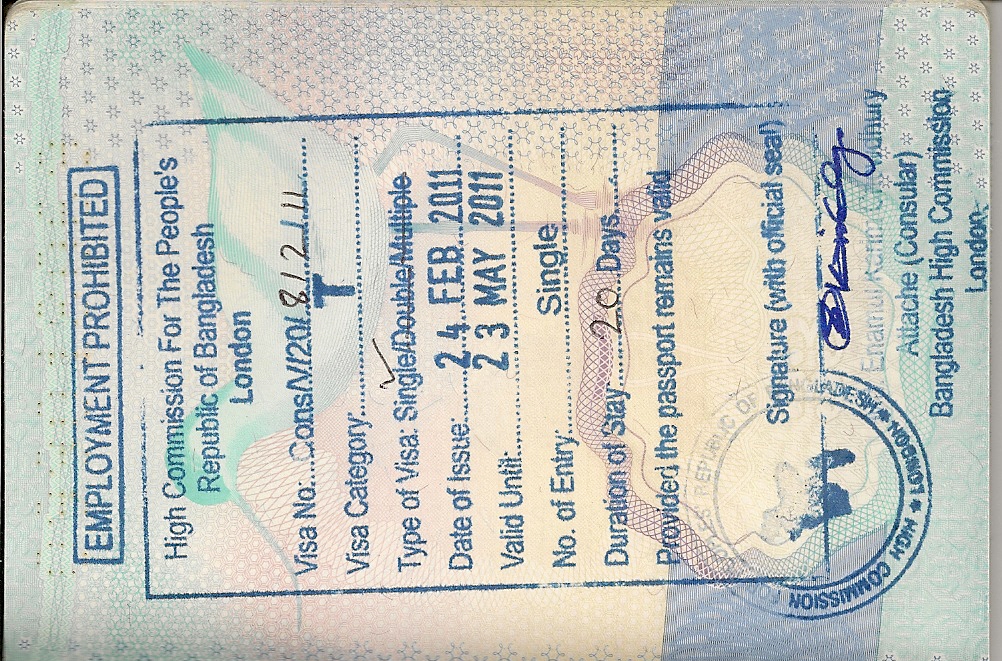 EMPLOYMENT PROHIBITED
High Commission For The People's
Republic of Bangladesh
London
Visa No:...Cons/V/201 812/11
Visa Category... T
Type of Visa: Single/Double/Multiple
Date of Issue:... 24 FEB 2011
Valid Until:... 23 MAY 2011
No. of Entry:... Single
Duration of Stay... 20 Days
Provided the passport remains valid
Signature (with official seal)
Attache (Consular)
Bangladesh High Commission
London.
REPUBLIC OF BANGLADESH ★ LONDON ★ HIGH COMMISSION